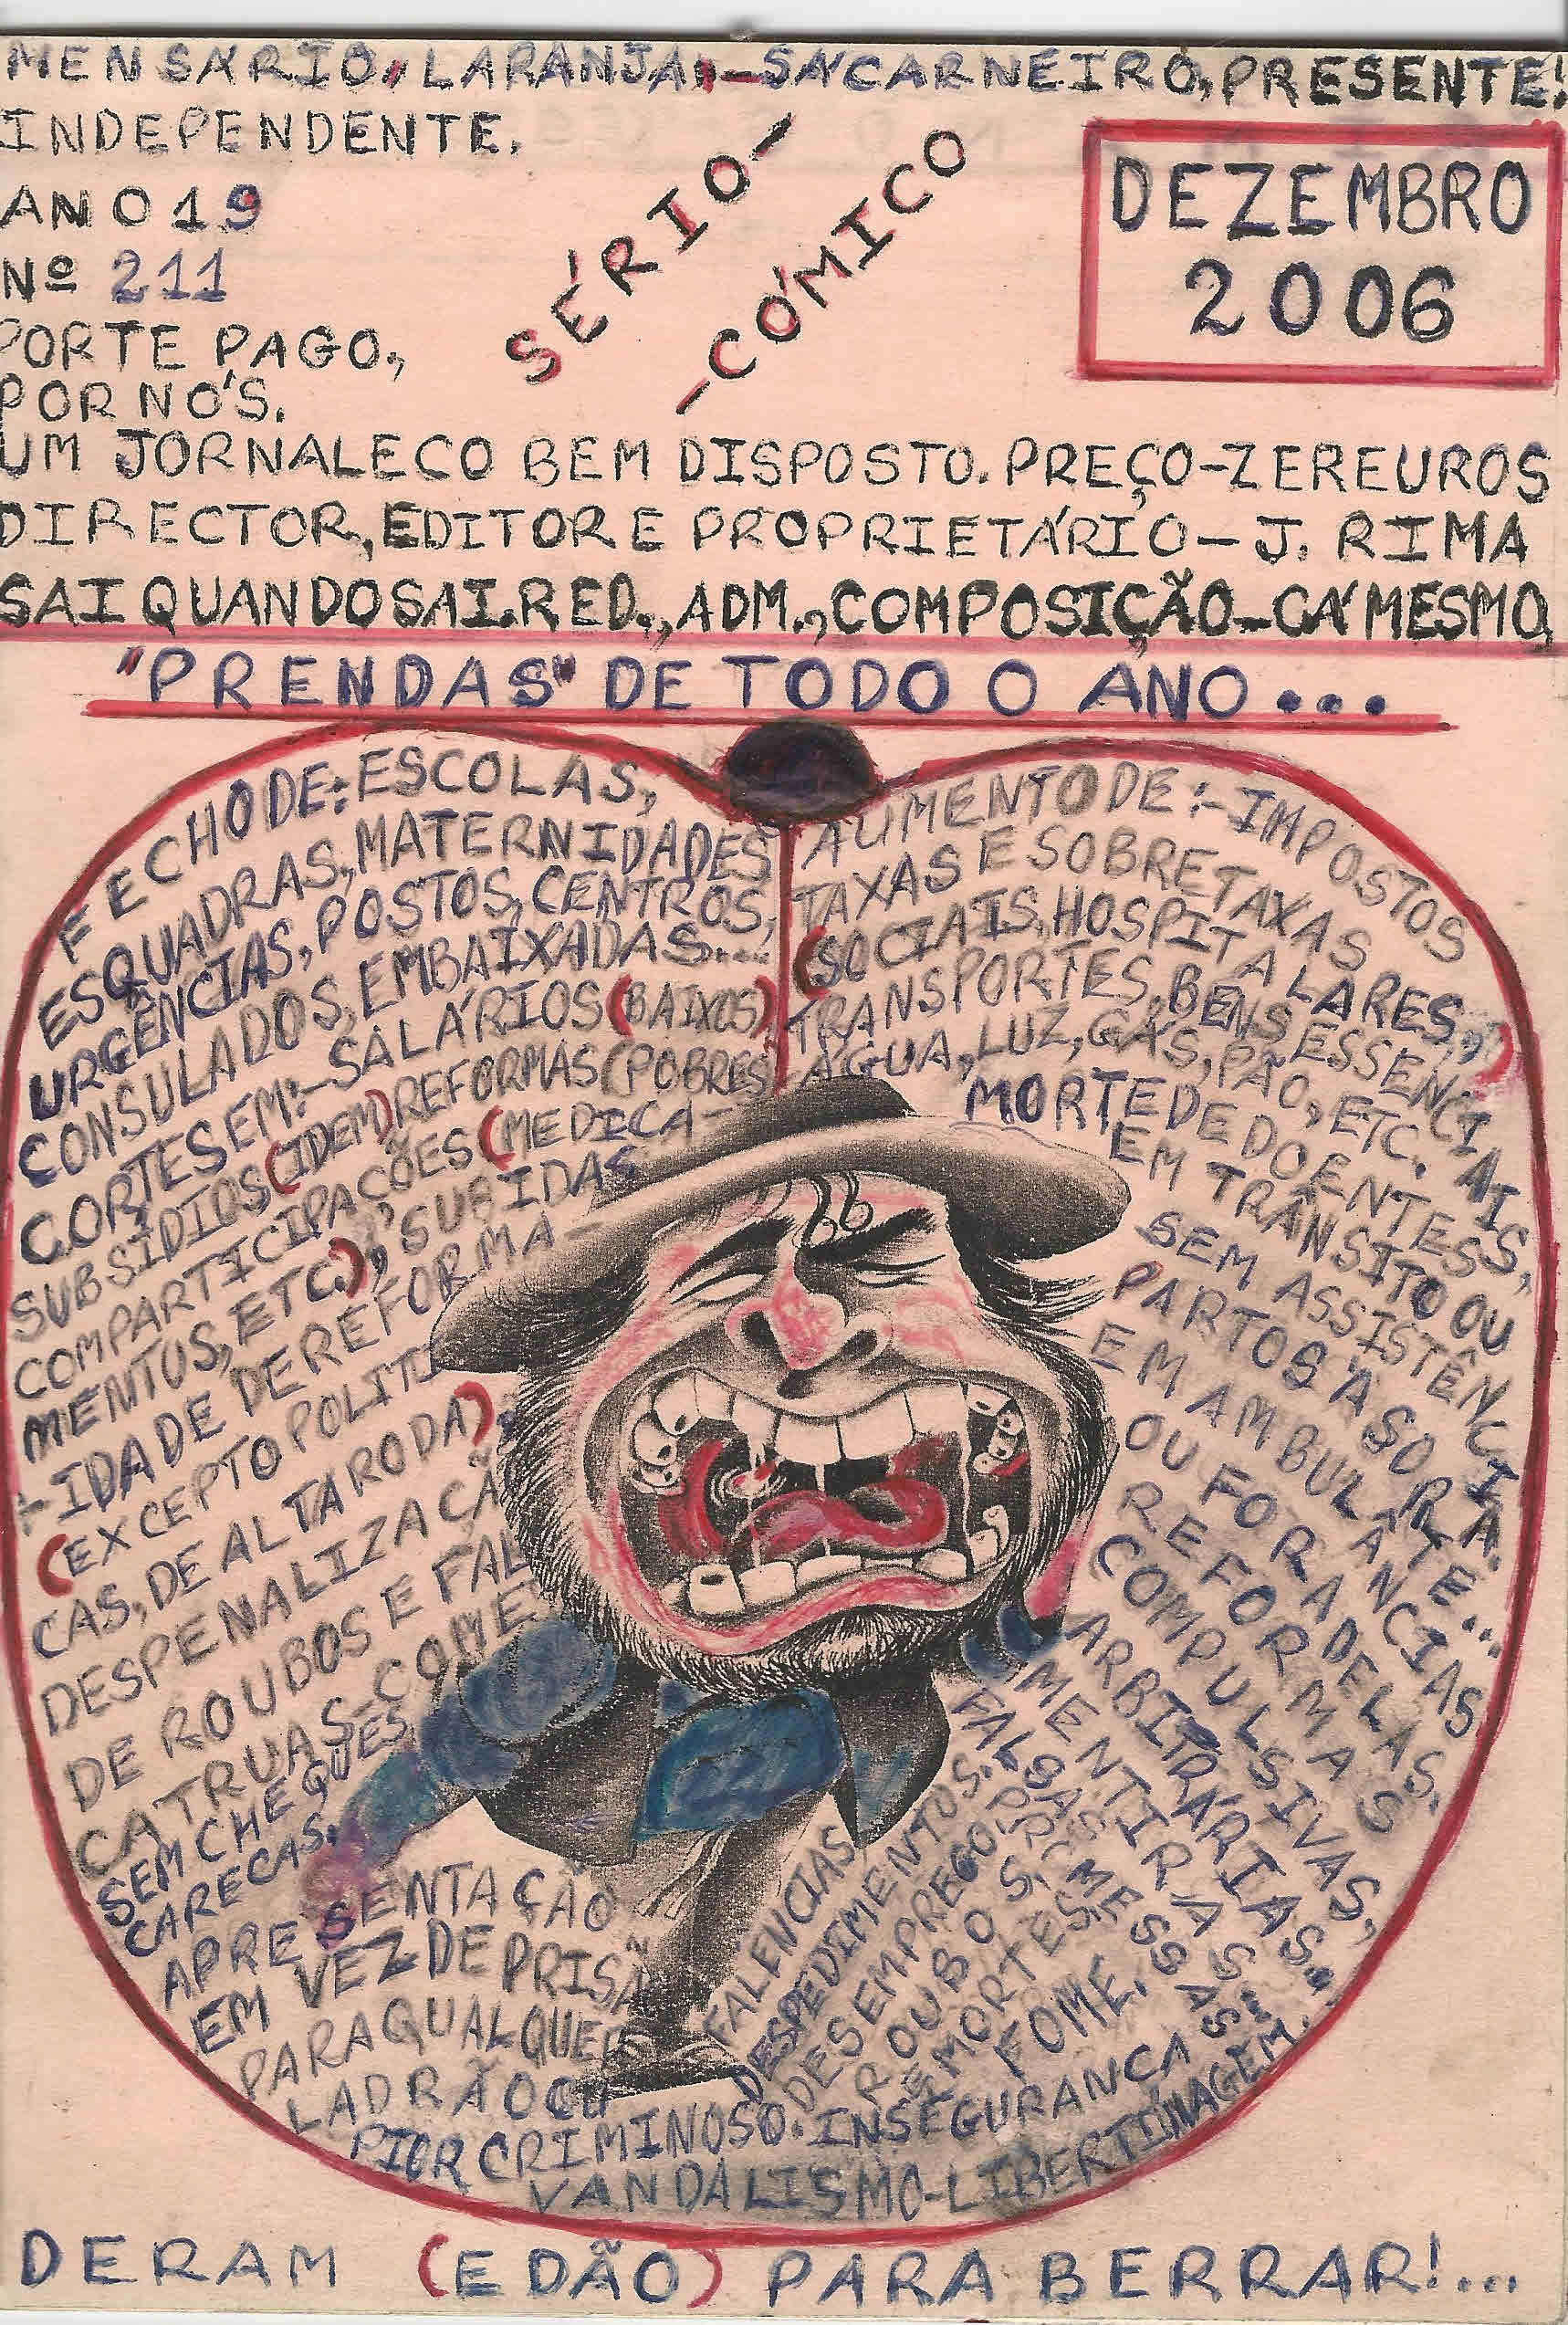 MENSÁRIO "LARANJA" - SÁ CARNEIRO, PRESENTE!
INDEPENDENTE.
ANO 19
Nº 211
PORTE PAGO,
POR NÓS.
SÉRIO-
-CÓMICO
DEZEMBRO
2006
UM JORNALECO BEM DISPOSTO. PREÇO-ZEREUROS
DIRECTOR, EDITOR E PROPRIETÁRIO - J. RIMA
SAI QUANDO SAI. RED., ADM., COMPOSIÇÃO - CÁ MESMO.
"PRENDAS" DE TODO O ANO...
FECHO DE: ESCOLAS,
ESQUADRAS, MATERNIDADES
URGÊNCIAS, POSTOS, CENTROS,
CONSULADOS, EMBAIXADAS....
CORTES EM:- SALÁRIOS (BAIXOS),
SUBSÍDIOS (IDEM) REFORMAS (POBRES)
COMPARTICIPAÇÕES (MEDICA-
MENTOS, ETC.), SUBIDAS
- IDADE DE REFORMA-
(EXCEPTO POLITI
CAS, DE ALTA RODA).
DESPENALIZAÇÃ
DE ROUBOS E FAL
CATRUAS-COME
SEM CHEQUES
CARECAS.
APRESENTAÇÃO
EM VEZ DE PRISÃ
PARA QUALQUER
LADRÃO OU
PIOR CRIMINOSO.
AUMENTO DE:- IMPOSTOS
TAXAS E SOBRETAXAS
(SOCIAIS, HOSPITALARES,,)
TRANSPORTES, BENS ESSENCIAIS,
ÁGUA, LUZ, GÁS, PÃO, ETC.
MORTE DE DOENTES
EM TRÂNSITO OU
SEM ASSISTÊNCIA.
PARTOS À SORTE...
EM AMBULÂNCIAS
OU FORA DELAS.
REFORMAS
COMPULSIVAS,
ARBITRÁRIAS..
MENTIRAS..
FALSAS
PROMESSAS
FALENCIAS
DESPEDIMENTOS.
DESEMPREGO.
ROUBOS
E MORTES.
FOME.
INSEGURANCA
VANDALISMO-LIBERTINAGEM.
DERAM (E DÃO) PARA BERRAR!...